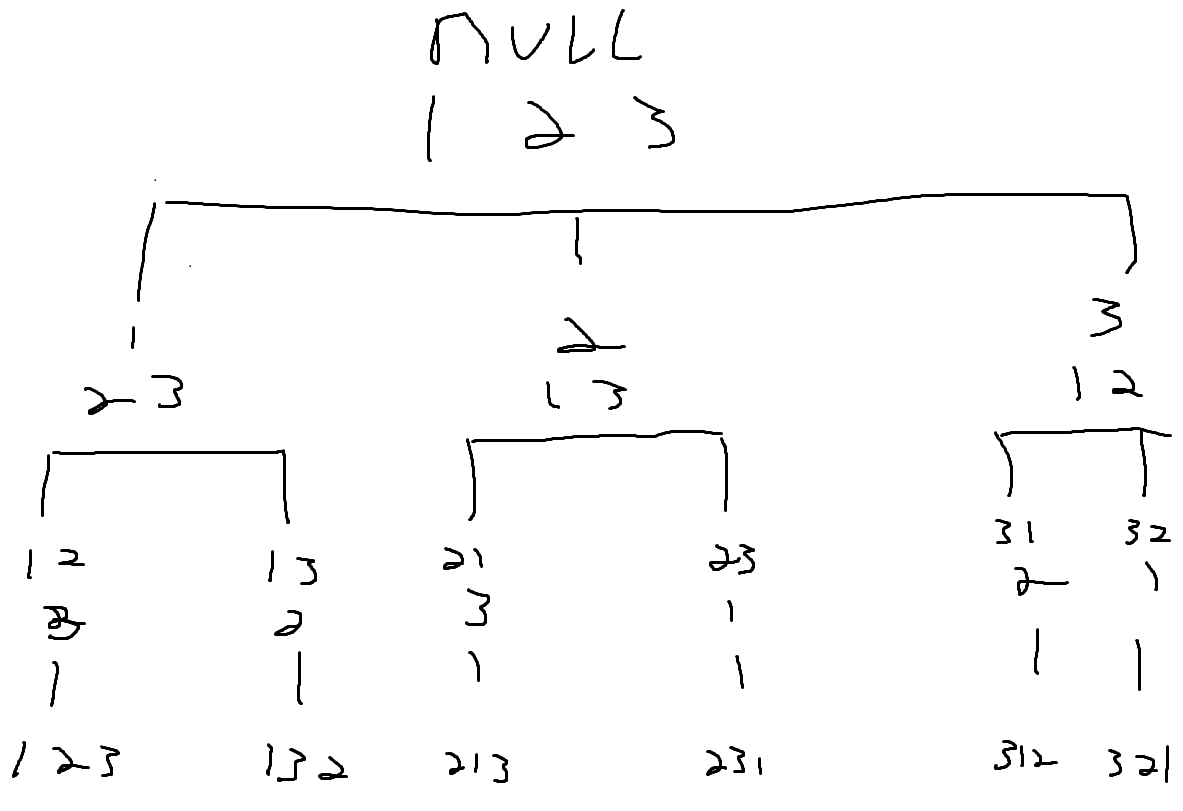 NULL
1 2 3
1 2 3
2 3 1 3 1 2
1 2 1 3 21 23 31 32
3 2 3 1 2 1
1 2 3 132 213 231 312 321